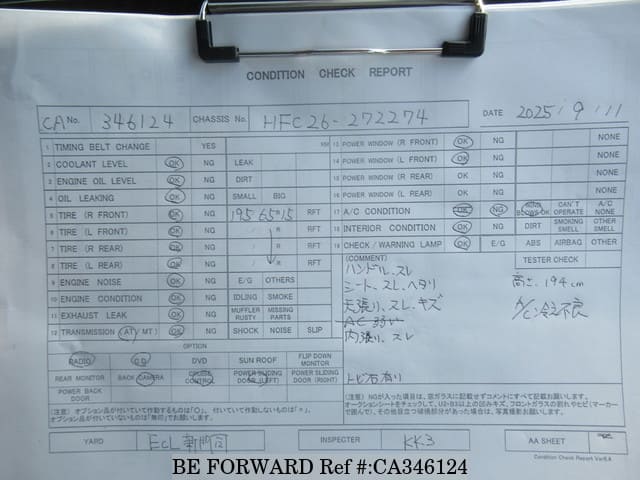 CONDITION CHECK REPORT
CA No. 346124 CHASSIS No. HFC26-272274 DATE 2025 / 9 / 11
1 TIMING BELT CHANGE YES KM
2 COOLANT LEVEL OK NG LEAK
3 ENGINE OIL LEVEL OK NG DIRT
4 OIL LEAKING OK NG SMALL BIG
5 TIRE (R FRONT) OK NG 195 65 R 15 RFT
6 TIRE (L FRONT) OK NG / R RFT
7 TIRE (R REAR) OK NG / R RFT
8 TIRE (L REAR) OK NG / R RFT
9 ENGINE NOISE OK NG E/G OTHERS
10 ENGINE CONDITION OK NG IDLING SMOKE
11 EXHAUST LEAK OK NG MUFFLER RUSTY MISSING PARTS
12 TRANSMISSION (AT/MT) OK NG SHOCK NOISE SLIP
OPTION
RADIO CD DVD SUN ROOF FLIP DOWN MONITOR
REAR MONITOR BACK CAMERA CRUISE CONTROL POWER SLIDING DOOR (LEFT) POWER SLIDING DOOR (RIGHT)
POWER BACK DOOR
(注意) オプション品が付いていて作動するものは「○」、付いていて作動しないものは「×」、
オプション品が付いていないものは「無印」でお願いします。
13 POWER WINDOW (R FRONT) OK NG NONE
14 POWER WINDOW (L FRONT) OK NG NONE
15 POWER WINDOW (R REAR) OK NG NONE
16 POWER WINDOW (L REAR) OK NG NONE
17 A/C CONDITION OK NG WIND BLOWS OK CAN'T OPERATE A/C NONE
18 INTERIOR CONDITION OK NG DIRT SMOKING SMELL OTHER SMELL
19 CHECK / WARNING LAMP OK E/G ABS AIRBAG OTHER
(COMMENT) TESTER CHECK
ハンドル、スレ
シート、スレ、ヘタリ
天張り、スレ、キズ
内張り、スレ
トビ石有り
高さ、194cm
A/C 冷え不良
(注意) NGが入った場合は、窓ガラスに記載せずコメントにすべて記載お願いします。
オークションシートをチェックして、U2・B3以上の凹みキズ、フロントガラスの割れやヒビ(マーカーで囲んで)、その他目立つ破損部分があった場合は、写真撮影お願いします。
YARD ECL INSPECTER KK3 AA SHEET
Condition Check Report Ver6.4
BE FORWARD Ref #:CA346124